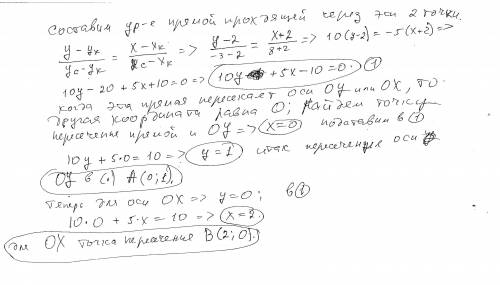 Составим ур-е прямой проходящей через эти 2 точки.
(y-yк)/(yс-yк) = (x-xк)/(xс-xк) => (y-2)/(-3-2) = (x+2)/(8+2) => 10(y-2) = -5(x+2) =>
10y-20+5x+10=0 => 10y +5x-10=0. ①
когда эта прямая пересекает оси OY или OX, то
другая координата равна 0; Найдем точку
пересечение прямой и OY => x=0 подставим в ①
10y+5·0=10 => y=1 итак пересечение оси
OY в (·) A(0;1).
Теперь для оси OX => y=0; в①
10·0+5·x=10 => x=2.
для OX точка пересечение B(2;0).